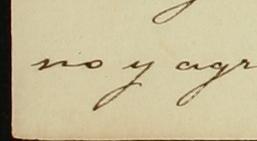 no y agr